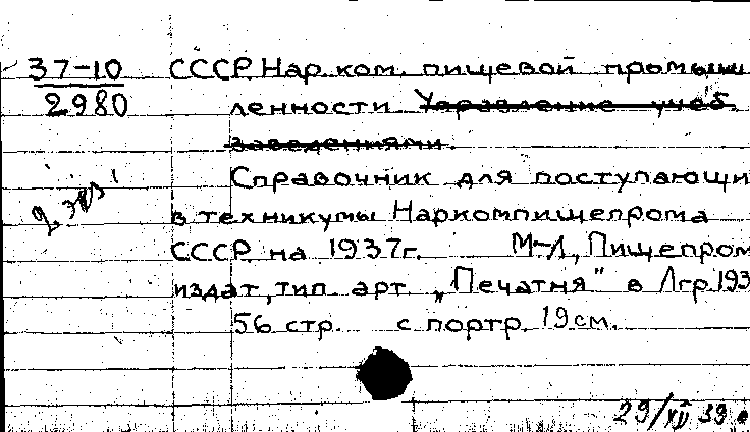 37-10 СССР. Нар. ком. пищевой промыш
2980 ленности. Управление учеб.
заведениями.
Справочник для поступающи
2 экз. в техникумы Наркомпищепрома
СССР на 1937г. М-Л, Пищепром
издат, тип. арт. „Печатня" в Лгр. 193
56 стр. с портр. 19 см.
29/XII 39.